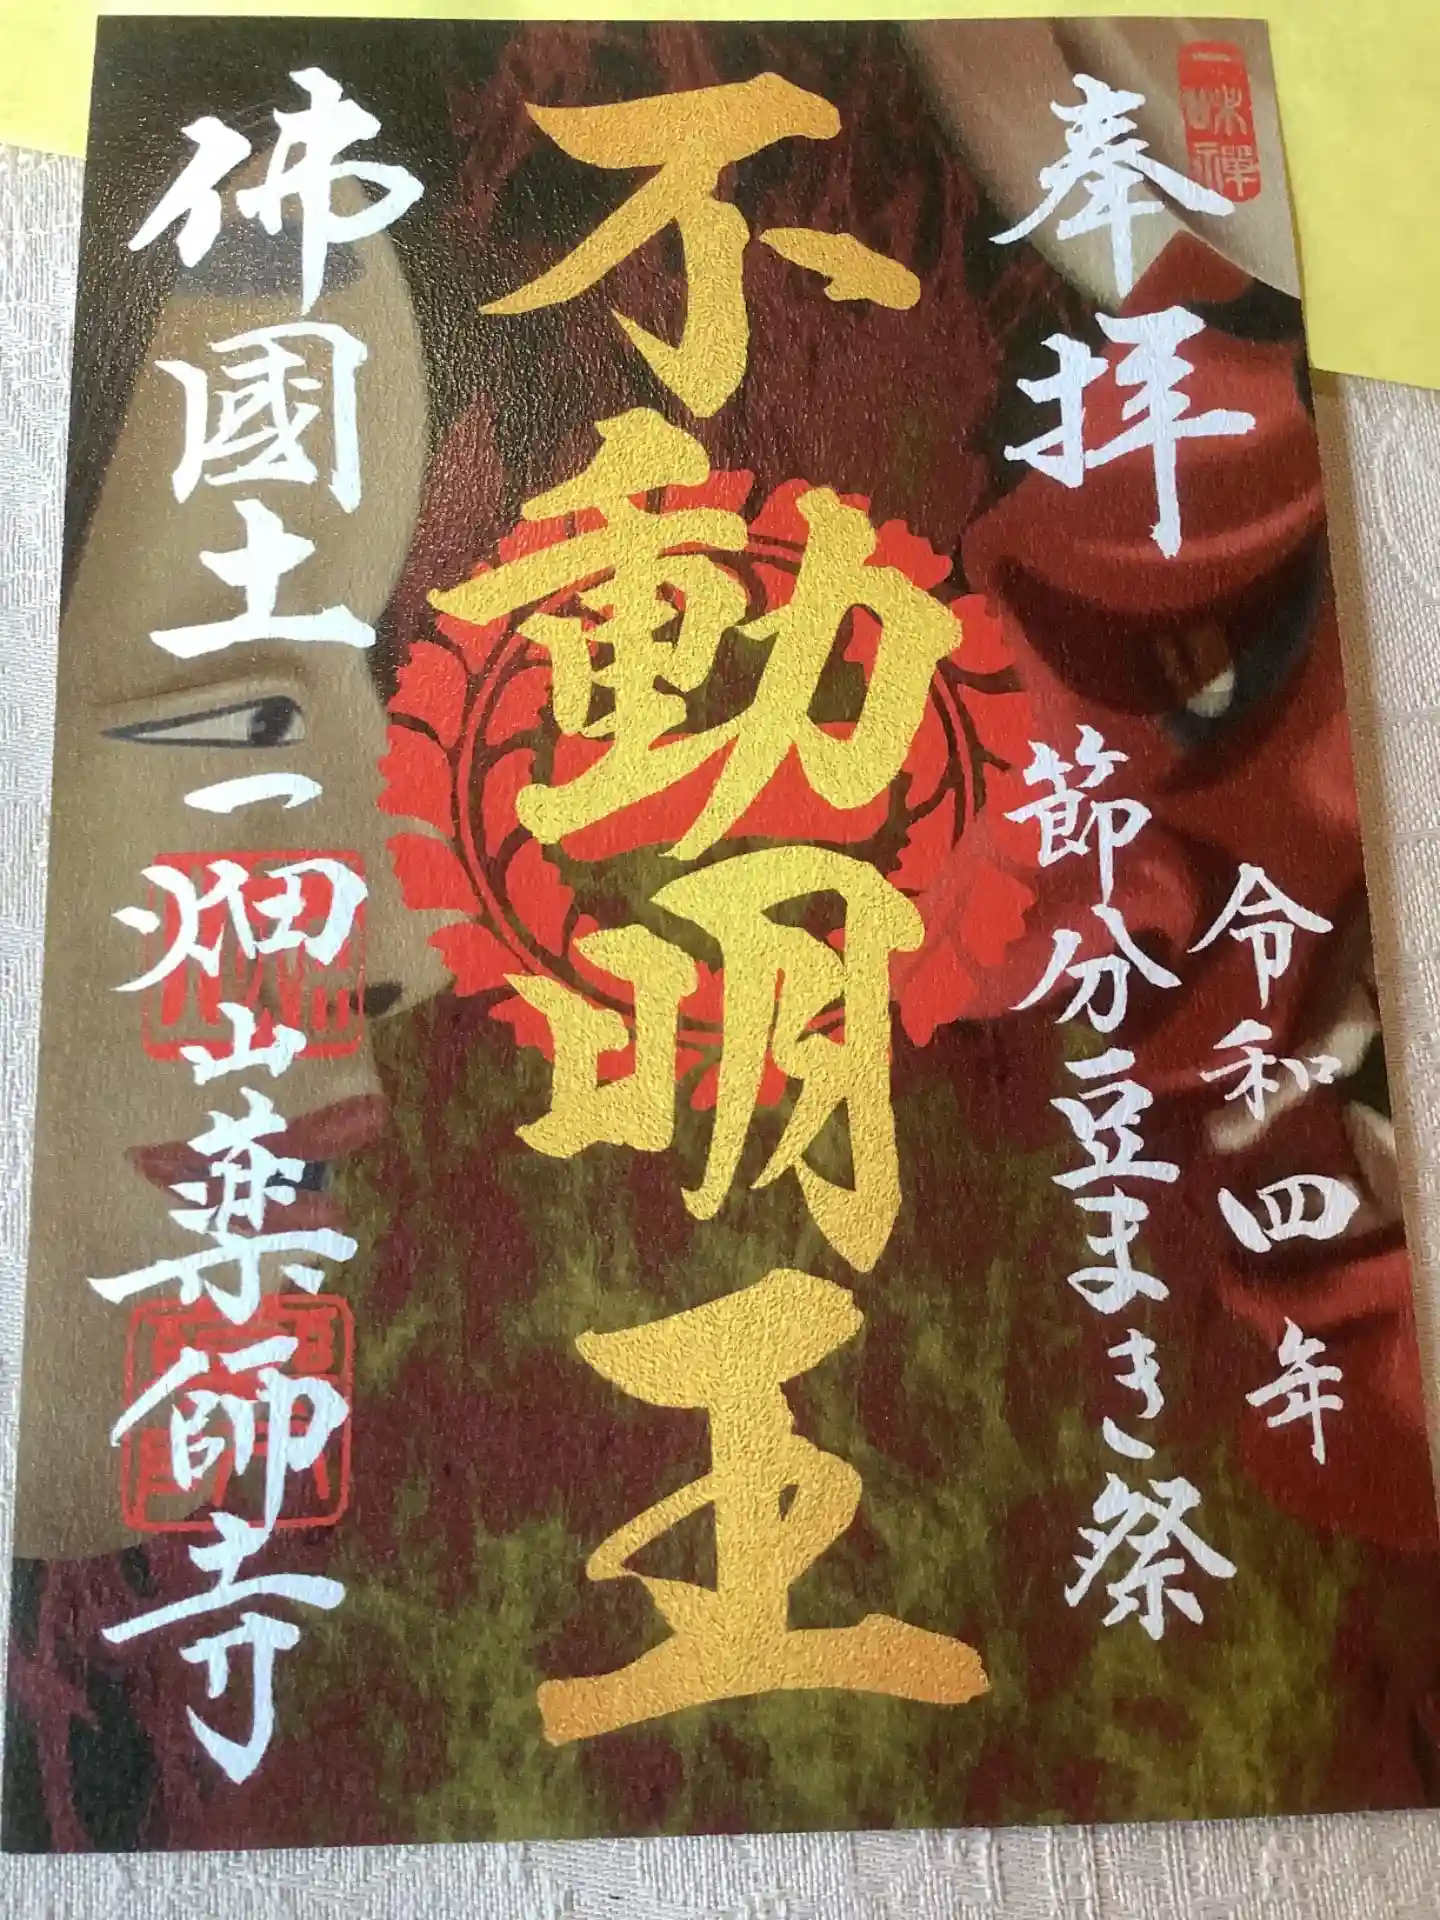 一味禅
奉拝
令和四年
節分豆まき祭
不動明王
佛國土
一畑山薬師寺